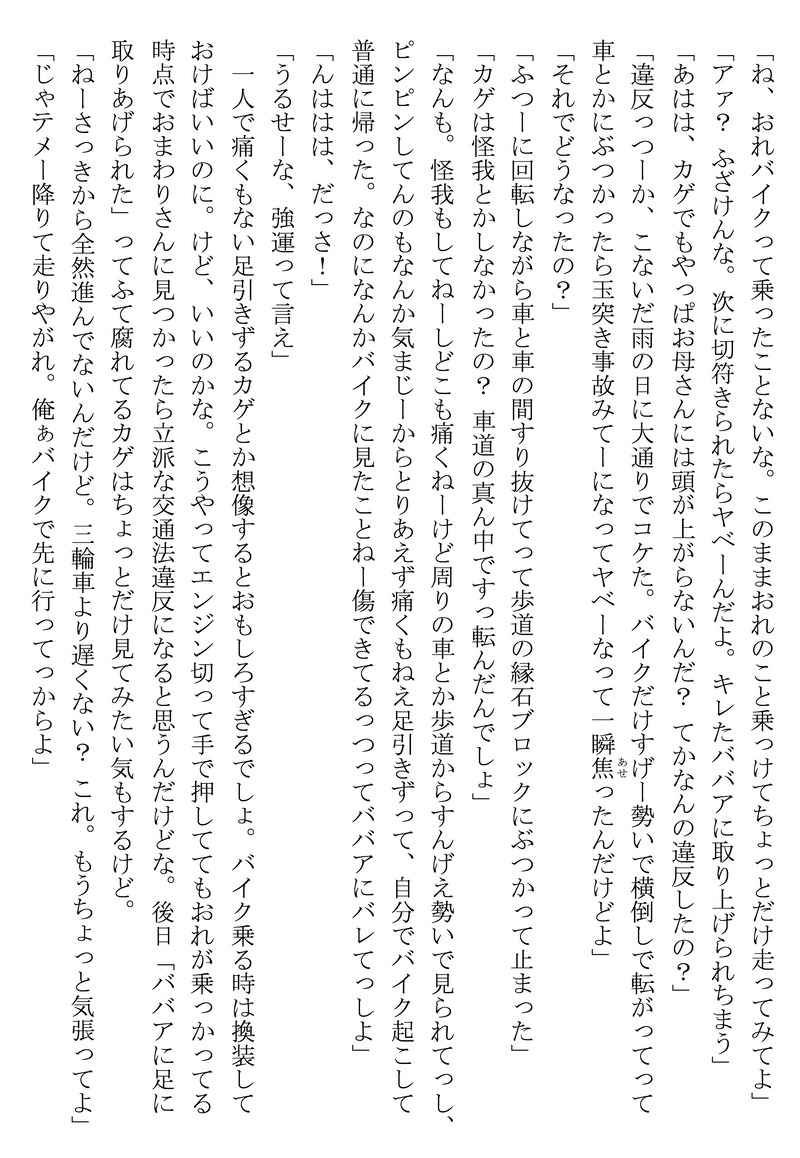 「ね、おれバイクって乗ったことないな。このままおれのこと乗っけてちょっとだけ走ってみてよ」
「アァ？　ふざけんな。次に切符きられたらヤベーんだよ。キレたババアに取り上げられちまう」
「あはは、カゲでもやっぱお母さんには頭が上がらないんだ？　てかなんの違反したの？」
「違反っつーか、こないだ雨の日に大通りでコケた。バイクだけすげー勢いで横倒しで転がってって
車とかにぶつかったら玉突き事故みてーになってヤベーなって一瞬焦ったんだけどよ」
あせ
「それでどうなったの？」
「ふつーに回転しながら車と車の間すり抜けてって歩道の縁石ブロックにぶつかって止まった」
「カゲは怪我とかしなかったの？　車道の真ん中ですっ転んだんでしょ」
「なんも。怪我もしてねーしどこも痛くねーけど周りの車とか歩道からすんげえ勢いで見られてっし、
ピンピンしてんのもなんか気まじーからとりあえず痛くもねえ足引きずって、自分でバイク起こして
普通に帰った。なのになんかバイクに見たことねー傷できてるっつってババアにバレてっしよ」
「んははは、だっさ！」
「うるせーな、強運って言え」
　一人で痛くもない足引きずるカゲとか想像するとおもしろすぎるでしょ。バイク乗る時は換装して
おけばいいのに。けど、いいのかな。こうやってエンジン切って手で押しててもおれが乗っかってる
時点でおまわりさんに見つかったら立派な交通法違反になると思うんだけどな。後日「ババアに足に
取りあげられた」ってふて腐れてるカゲはちょっとだけ見てみたい気もするけど。
「ねーさっきから全然進んでないんだけど。三輪車より遅くない？　これ。もうちょっと気張ってよ」
「じゃテメー降りて走りやがれ。俺ぁバイクで先に行ってっからよ」